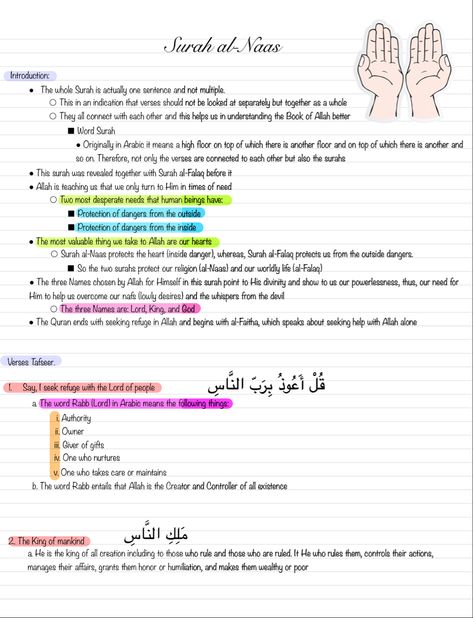 Surah al-Naas
Introduction:
• The whole Surah is actually one sentence and not multiple.
○ This in an indication that verses should not be looked at separately but together as a whole
○ They all connect with each other and this helps us in understanding the Book of Allah better
■ Word Surah
• Originally in Arabic it means a high floor on top of which there is another floor and on top of which there is another and
so on. Therefore, not only the verses are connected to each other but also the surahs
• This surah was revealed together with Surah al-Falaq before it
• Allah is teaching us that we only turn to Him in times of need
○ Two most desperate needs that human beings have:
■ Protection of dangers from the outside
■ Protection of dangers from the inside
• The most valuable thing we take to Allah are our hearts
○ Surah al-Naas protects the heart (inside danger), whereas, Surah al-Falaq protects us from the outside dangers.
■ So the two surahs protect our religion (al-Naas) and our worldly life (al-Falaq)
• The three Names chosen by Allah for Himself in this surah point to His divinity and show to us our powerlessness, thus, our need for
Him to help us overcome our nafs (lowly desires) and the whispers from the devil
○ The three Names are: Lord, King, and God
• The Quran ends with seeking refuge in Allah and begins with al-Faitha, which speaks about seeking help with Allah alone
Verses Tafseer:
1. Say, I seek refuge with the Lord of people قُلْ أَعُوذُ بِرَبِّ النَّاسِ
a. The word Rabb (Lord) in Arabic means the following things:
i. Authority
ii. Owner
iii. Giver of gifts
iv. One who nurtures
v. One who takes care or maintains
b. The word Rabb entails that Allah is the Creator and Controller of all existence
2. The King of mankind مَلِكِ النَّاسِ
a. He is the king of all creation including to those who rule and those who are ruled. It He who rules them, controls their actions,
manages their affairs, grants them honor or humiliation, and makes them wealthy or poor